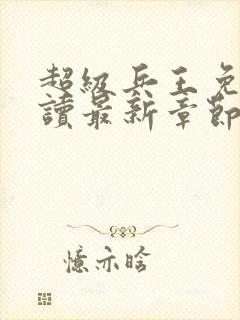 超級兵王免
讀最新章節
憶亦晗